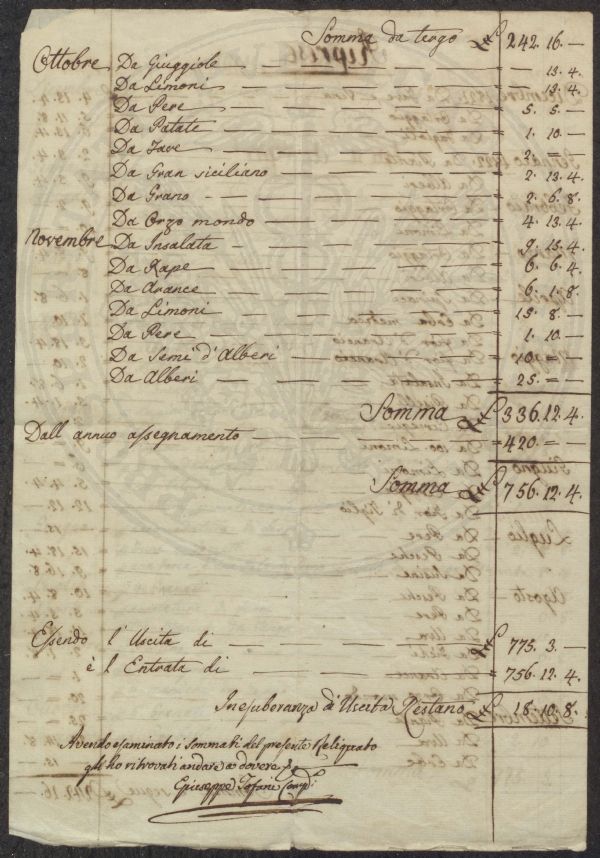 Somma da tergo 242. 16. —
Ottobre Da Giuggiole — 13. 4.
Da Limoni — 13. 4.
Da Pere — 5. 5. —
Da Patate — 1. 10. —
Da Fave — 2. = —
Da Gran siciliano — 2. 13. 4.
Da Grano — 2. 6. 8.
Da Orzo mondo — 4. 13. 4.
Novembre Da Insalata — 9. 13. 4.
Da Rape — 6. 6. 4.
Da Arance — 6. 1. 8.
Da Limoni — 15. 8. —
Da Pere — 1. 10. —
Da Semi d'Alberi — 10. = —
Da Alberi — 25. = —
Somma 336. 12. 4.
Dall annuo assegnamento — 420. = —
Somma 756. 12. 4.
Essendo l'Uscita di — 775. 3. —
è l'Entrata di — 756. 12. 4.
Inesuberanza d'Uscita Restano 18. 10. 8.
Avendo esaminato i sommati del presente Reliquato
gli ho ritrovati andare a dovere
Giuseppe Tofani